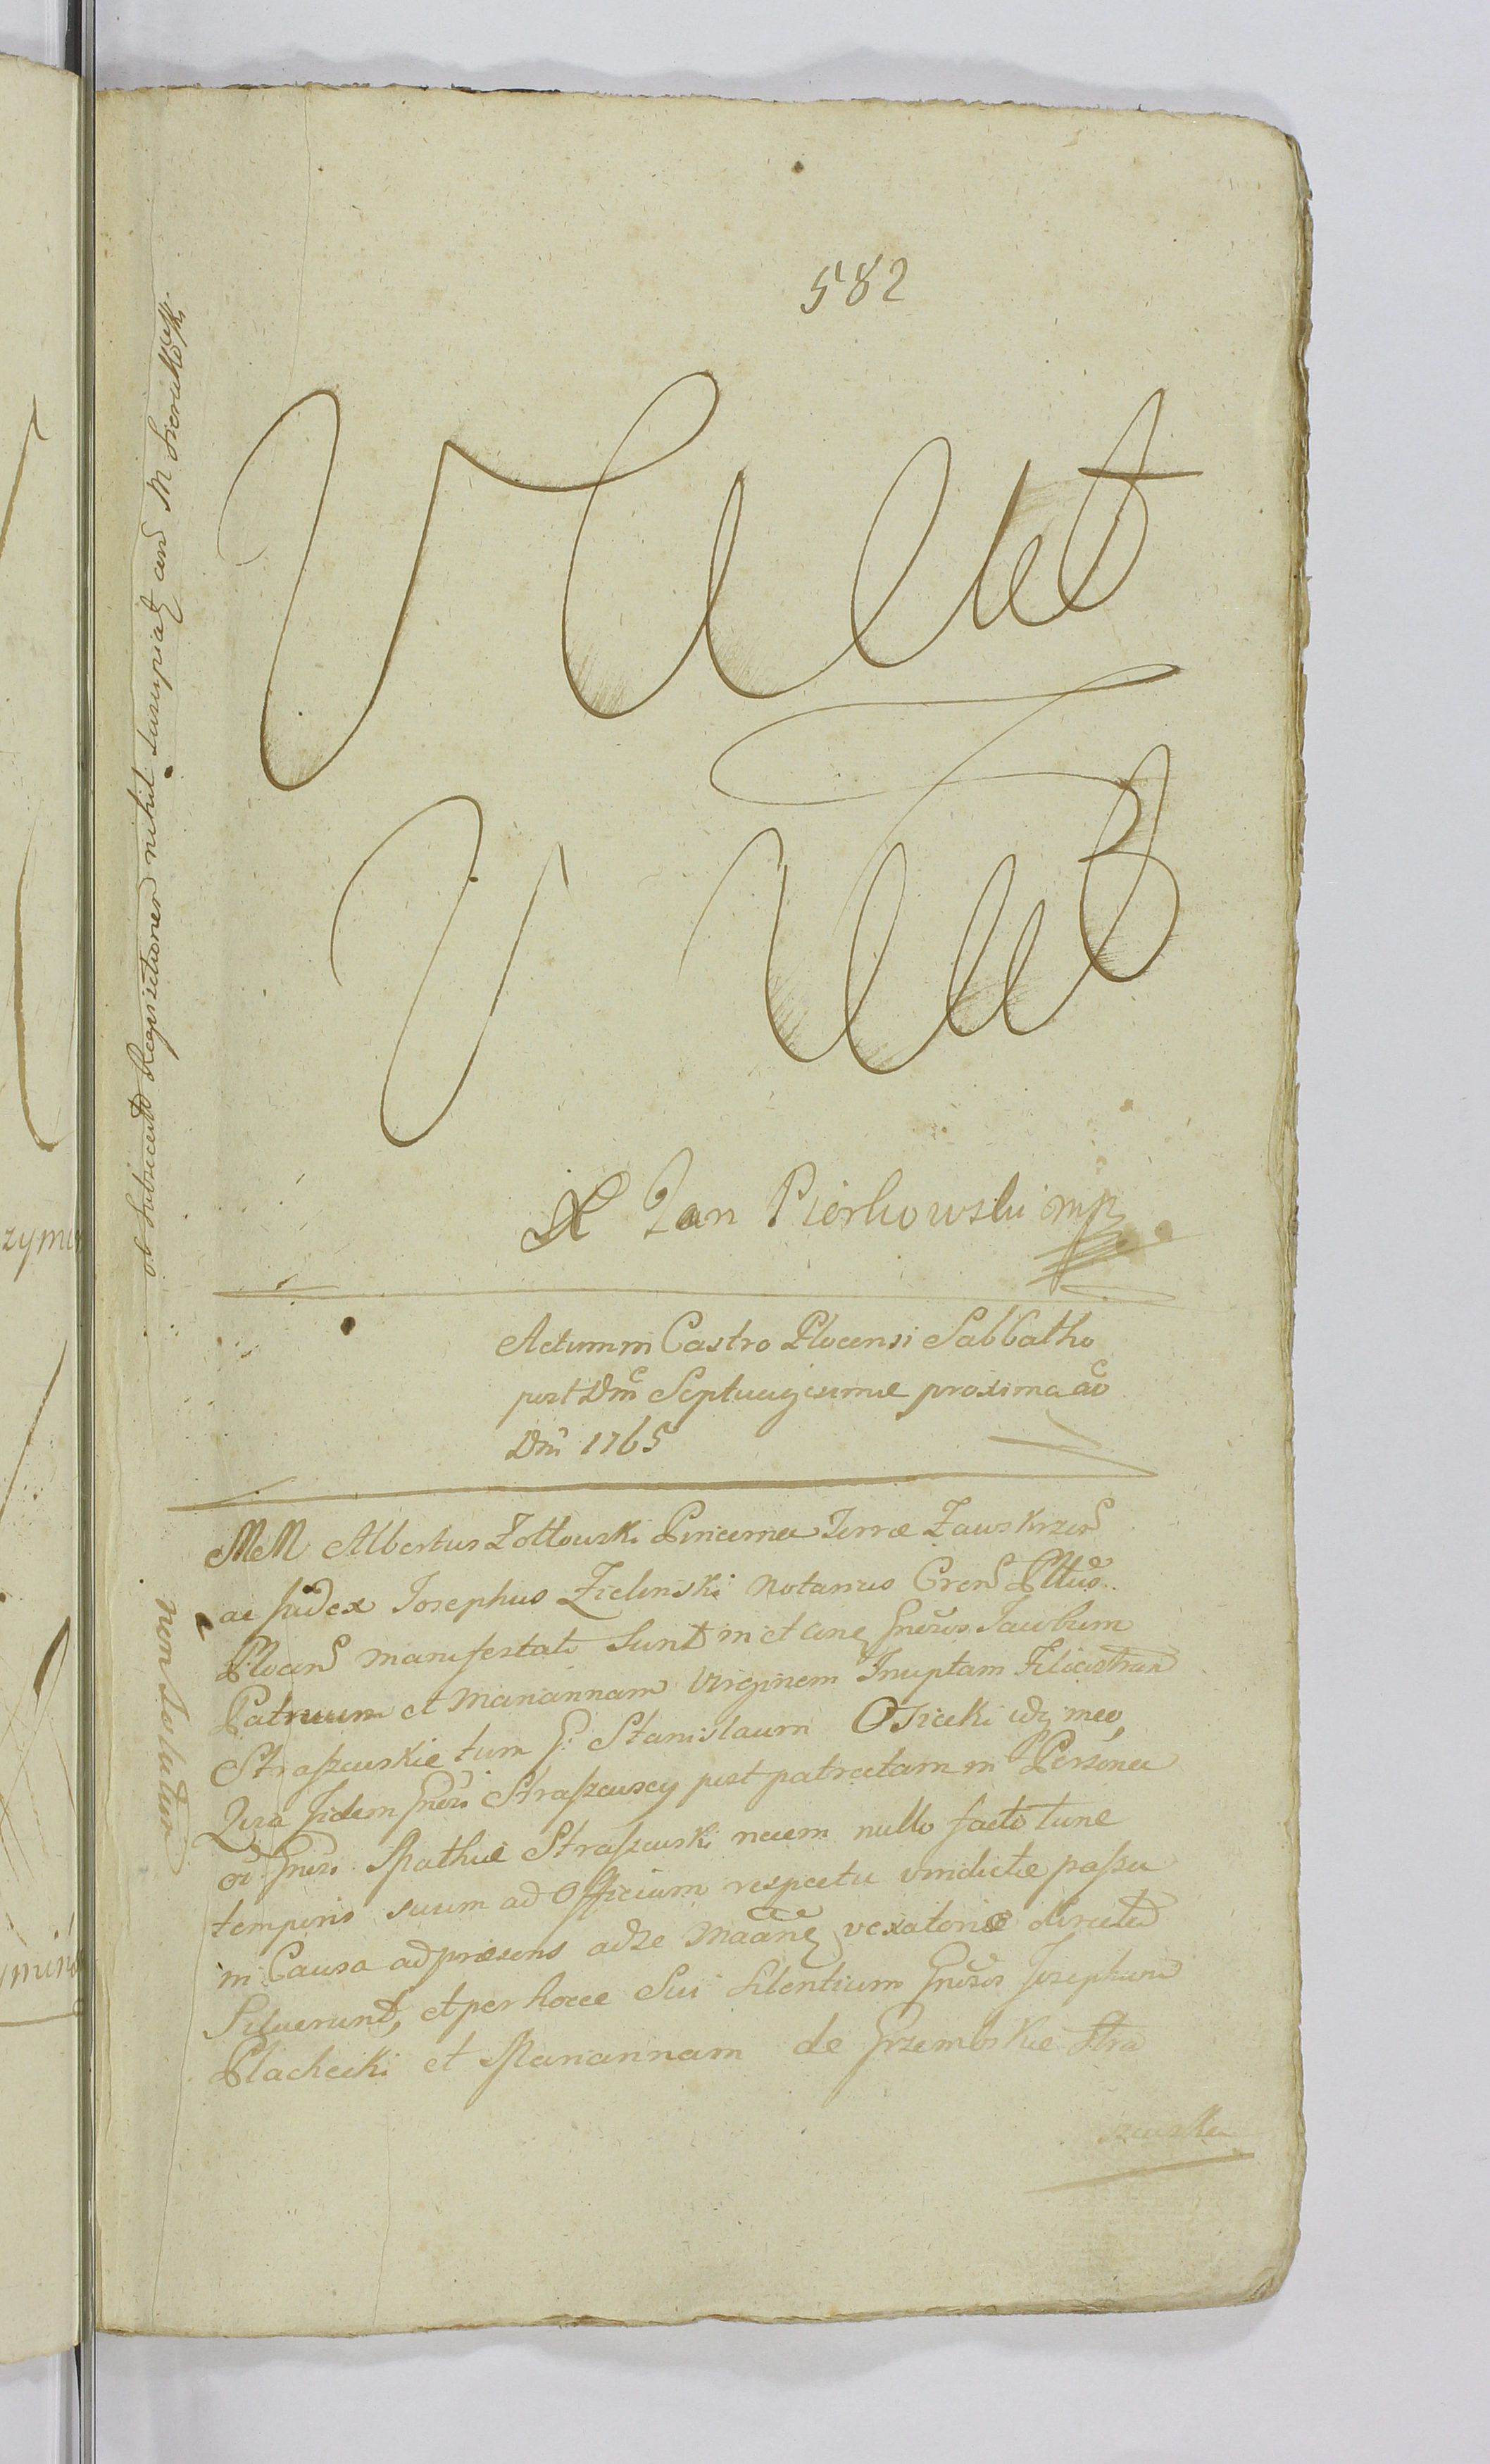 582
Vacat
X Jan Piórkowski mp
Actum in Castro Plocensi Sabbatho
post Dmcã Septuagesimæ proxima aõ
Dni 1765
MM Albertus Zołtowski Pincerna Terræ Zawskrzen
ac Judex Josephus Zielinski Notarius Cren Pltus
Plocen manifestati Sunt in et cone Gnosos Jacobum
Patruum et Mariannam Virginem Inuptam Filiastram
Straszewskie tum G. Stanislaum Osiecki idq meo
Quia Jidem Gnosi Straszewscy post patratam in Persona
oi Gnosi Mathiæ Straszewski necem nullo facto tunc
temporis suum ad Officium respectu vindictæ passu
in Causa ad præsens ad se maãne vexatoriæ directa
Siluerunt, et per hocce Sui Silentium Gnosos Josephum
Płachecki et Mariannam de Grzembskie Stra
szewska
ob Subjectã Regestationem nihil suscepiat
non solutum